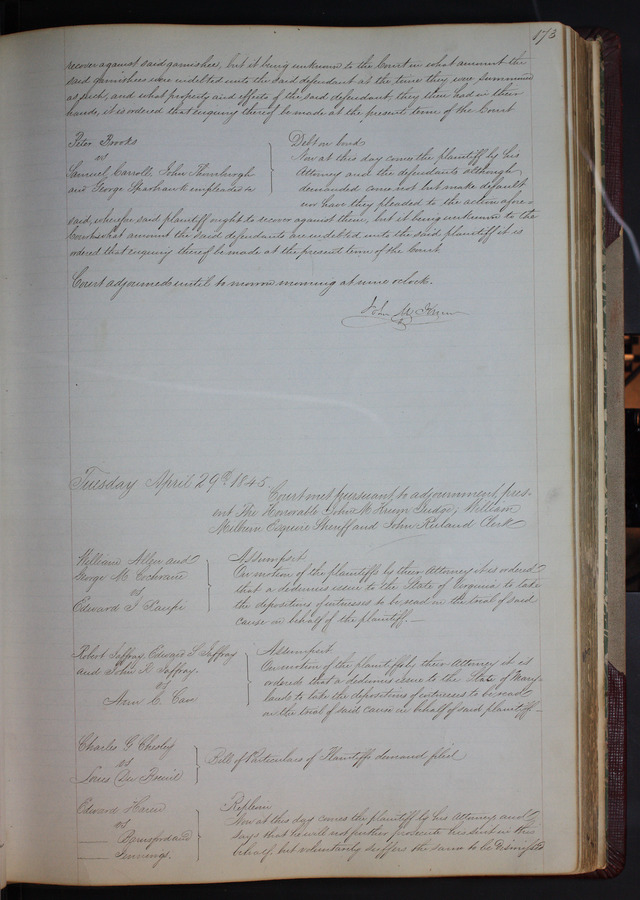 173
recover against said garnishees, but it being unknown to the Court in what amount the
said garnishees were indebted unto the said defendant at the time they were summoned
as such, and what property and effects of the said defendant they then had in their
hands, it is ordered that enquiry thereof be made at the present term of the Court
Peter Brooks
vs
Samuel Carroll John Thornburgh
and George Sparhawk impleaded &c
Debt on bond
Now at this day come the plaintiff by his
Attorney and the defendants although
demanded come not but make default
nor have they pleaded to the action afore-
said, wherefore said plaintiff ought to recover against them, but it being unknown to the
Court what amount the said defendants are indebted unto the said plaintiff it is
ordered that enquiry thereof be made at the present term of the Court
Court adjourned until to morrow morning at nine oclock.
John M. Krum
Tuesday April 29th 1845
Court met pursuant to adjournment, pres-
ent The Honorable John M Krum Judge, William
Milburn Esquire Sheriff and John Ruland Clerk
William Allen and
George M Cochrane
vs
Edward J
Assumpsit
On motion of the plaintiffs by their Attorney it is ordered
that a dedimus issue to the State of Virginia to take
the depositions of witnesses to be read in the trial of said
cause in behalf of the plaintiff.—
Robert Jaffray, Edward S Jaffray
and John R Jaffray.
vs
C. Cave
Assumpsit.
On motion of the plaintiffs by their Attorney it is
ordered that a dedimus issue to the State of Mary-
land to take the depositions of witnesses to be read
on the trial of said cause in behalf of said plaintiff—
Charles G Chesley
vs
Louis Du Breuil
Bill of Particulars of Plaintiffs demand filed
Edward Haren
vs
and
Jennings.
Replevin
Now at this day comes the plaintiff by his Attorney and
says that he will not further prosecute his suit in this
behalf, but voluntarily suffers the same to be dismissed